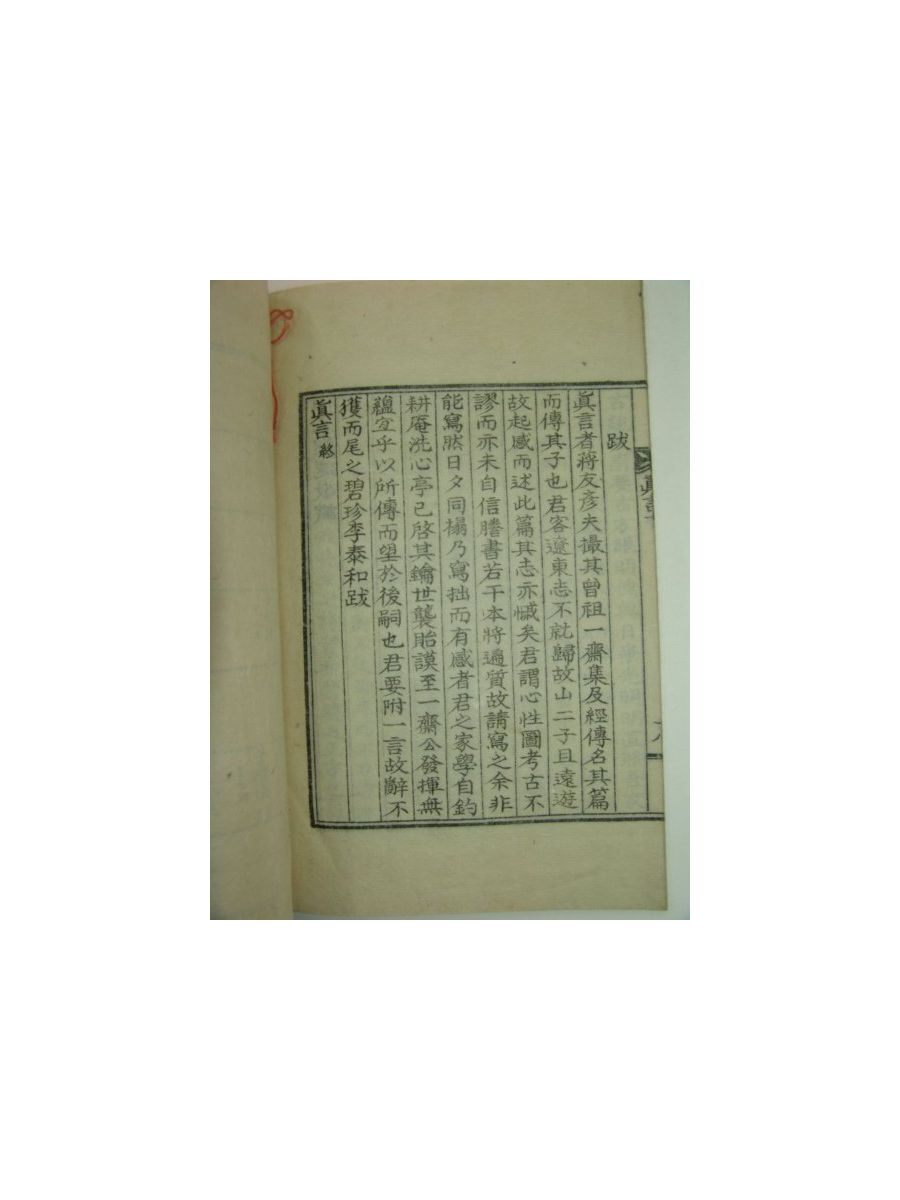 跋
眞言者蔣友彦夫撮其曾祖一齋集及經傳名其篇
而傳其子也君客遼東志不就歸故山二子且遠遊
故起感而述此篇其志亦慽矣君謂心性圖考古不
謬而亦未自信謄書若干本將遍質故請寫之余非
能寫然日夕同榻乃寫拙而有感者君之家學自釣
耕庵洗心亭已啓其鑰世襲貽謨至一齋公發揮無
蘊宜乎以所傳而望於後嗣也君要附一言故辭不
獲而尾之碧珍李泰和跋
眞言終